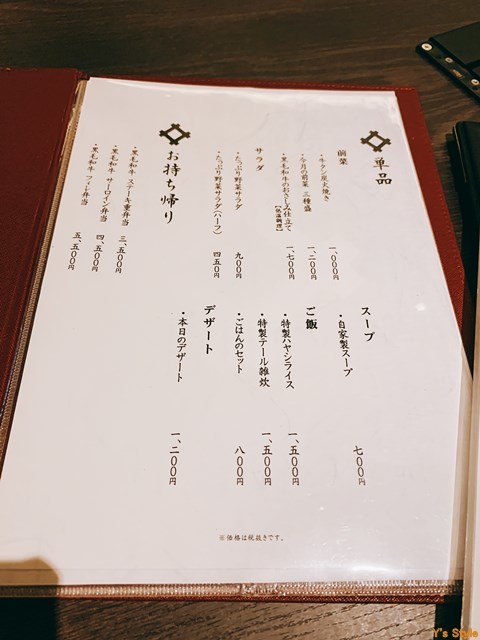 単品
前菜
・牛タン炭火焼き 一、〇〇〇円
・今月の前菜 三種盛 一、二〇〇円
・黒毛和牛のおさしみ仕立て【低温調理】 一、七〇〇円
サラダ
・たっぷり野菜サラダ 九〇〇円
・たっぷり野菜サラダ(ハーフ) 四五〇円
お持ち帰り
・黒毛和牛 ステーキ重弁当 三、五〇〇円
・黒毛和牛 サーロイン弁当 四、五〇〇円
・黒毛和牛 フィレ弁当 五、五〇〇円
スープ
・自家製スープ 七〇〇円
ご飯
・特製ハヤシライス 一、五〇〇円
・特製テール雑炊 一、五〇〇円
・ごはんのセット 八〇〇円
デザート
・本日のデザート 一、二〇〇円
※価格は税抜きです。
Y's Style